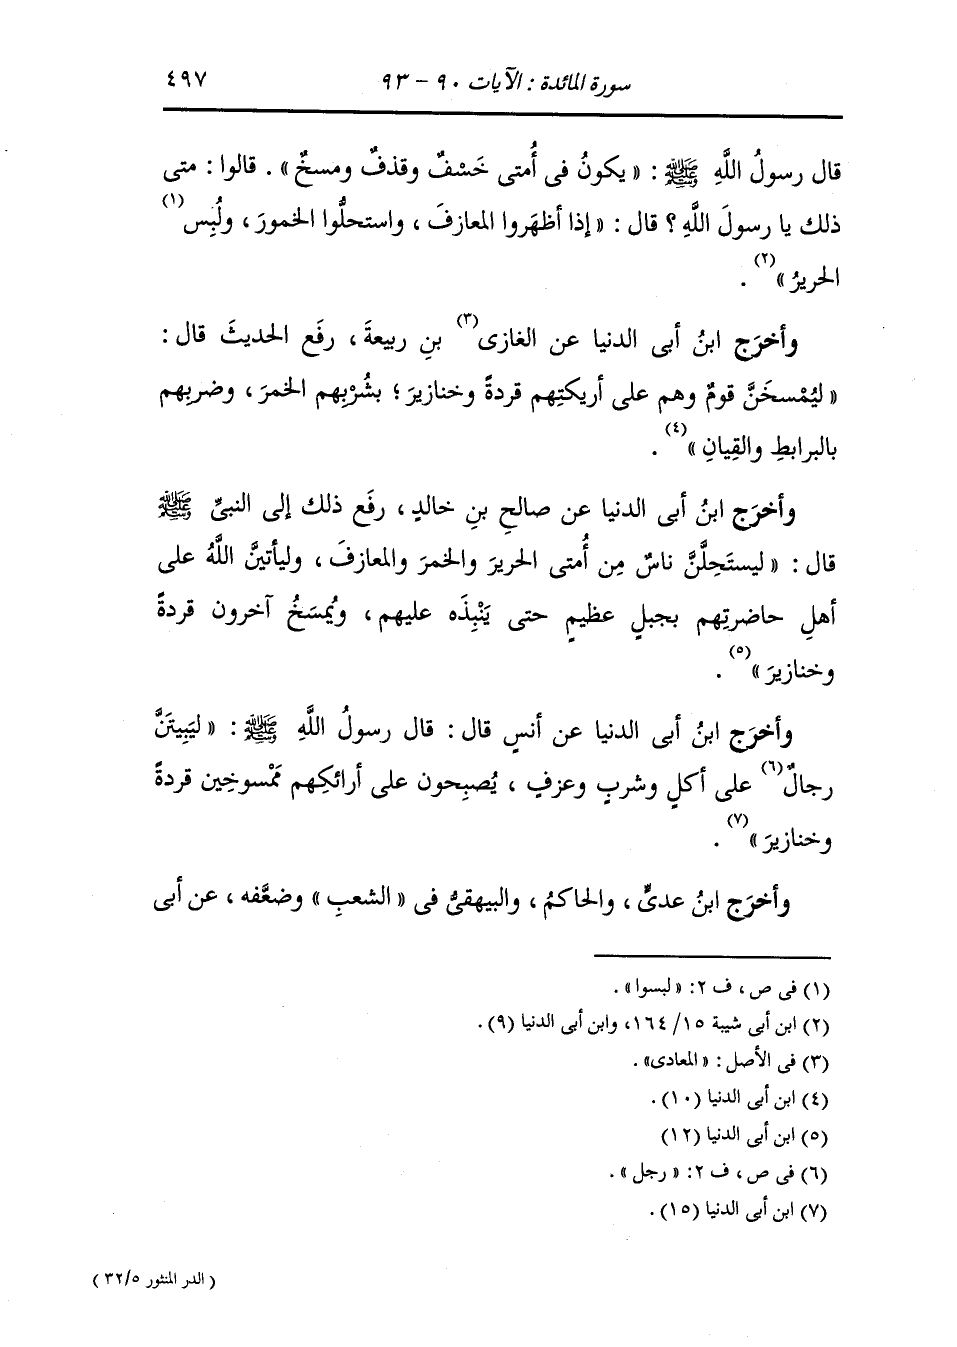 سورة المائدة : الآيات ٩٠ - ٩٣ ٤٩٧
قال رسولُ اللَّهِ ﷺ : « يكونُ فى أُمتى خَسْفٌ وقذفٌ ومسخٌ » . قالوا : متى
ذلك يا رسولَ اللَّهِ ؟ قال : « إذا أظهَروا المعازفَ ، واستحلُّوا الخمورَ ، ولُبِس(١)
الحريرُ »(٢) .
وأخرَج ابنُ أبى الدنيا عن الغازى(٣) بنِ ربيعةَ ، رفَع الحديثَ قال :
« ليُمْسخَنَّ قومٌ وهم على أريكتِهم قردةً وخنازيرَ ؛ بشُرْبِهم الخمرَ ، وضربِهم
بالبرابطِ والقِيانِ »(٤) .
وأخرَج ابنُ أبى الدنيا عن صالحِ بنِ خالدٍ ، رفَع ذلك إلى النبىِّ ﷺ
قال : « ليستَحِلَّنَّ ناسٌ مِن أُمتى الحريرَ والخمرَ والمعازفَ ، وليأتينَّ اللَّهُ على
أهلِ حاضرتِهم بجبلٍ عظيمٍ حتى يَنْبِذَه عليهم ، ويُمسَخُ آخرون قردةً
وخنازيرَ »(٥) .
وأخرَج ابنُ أبى الدنيا عن أنسٍ قال : قال رسولُ اللَّهِ ﷺ : « ليَبِيتَنَّ
رجالٌ(٦) على أكلٍ وشربٍ وعزفٍ ، يُصبِحون على أرائكِهم مَمْسوخِين قردةً
وخنازيرَ »(٧) .
وأخرَج ابنُ عدىٍّ ، والحاكمُ ، والبيهقىُّ فى « الشعبِ » وضعَّفه ، عن أبى
(١) فى ص ، ف ٢: « لبسوا » .
(٢) ابن أبى شيبة ١٥/ ١٦٤، وابن أبى الدنيا (٩) .
(٣) فى الأصل : « المعادى» .
(٤) ابن أبى الدنيا (١٠) .
(٥) ابن أبى الدنيا (١٢)
(٦) فى ص ، ف ٢: « رجل » .
(٧) ابن أبى الدنيا (١٥) .
( الدر المنثور ٣٢/٥ )